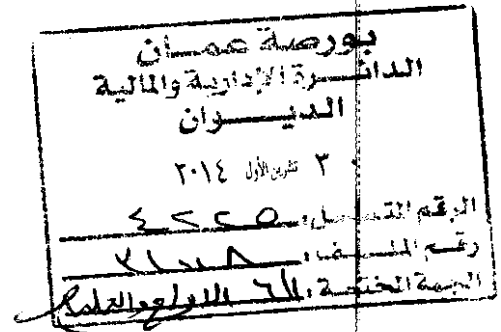 بورصة عمان
الدائرة الإدارية والمالية
الديوان
٣ تشرين الأول ٢٠١٤
الرقم المتسلسل: ٤٢٢٥
رقم الملف:
الجهة المختصة: